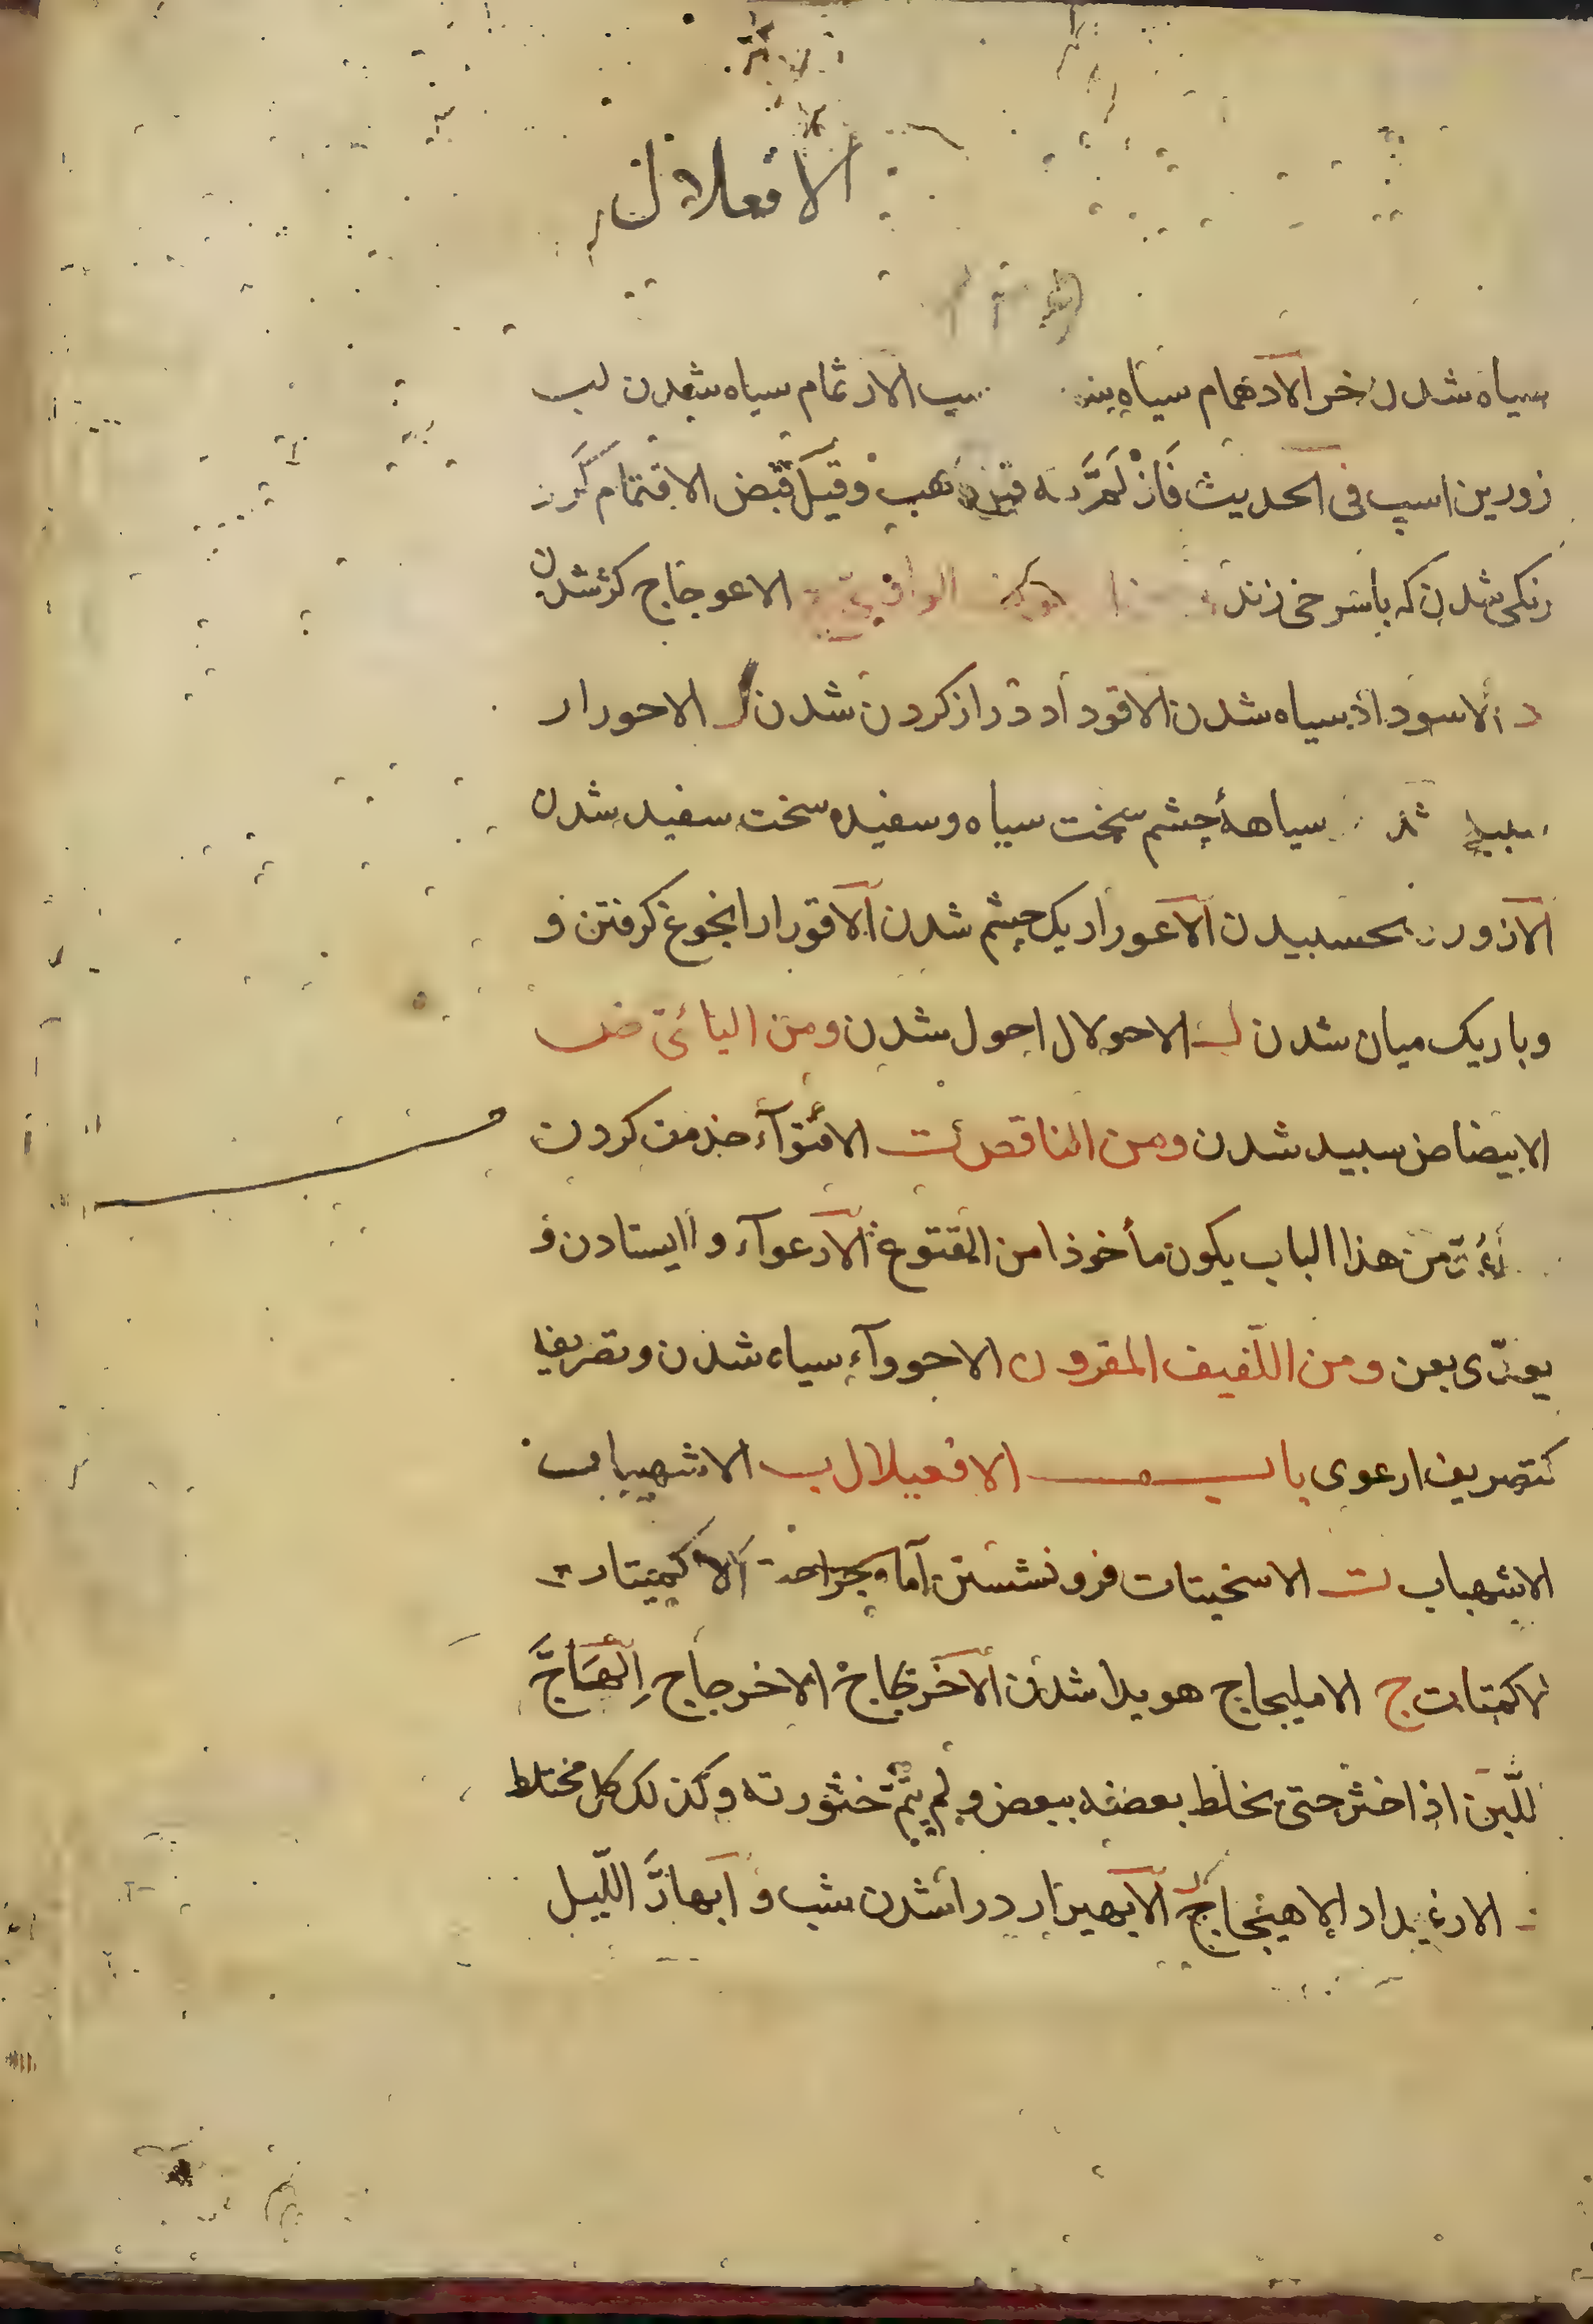 الافعلال
سیاه شدن خر الادهمام سیاه الارثمام سیاه شدن لب
زورین اسپ فی الحدیث ذهب وقیل قبض الاقتمام
رنکی شدن که باسرخی زند الواوی الاعوجاج کژ شدن
د الاسوداد سیاه شدن الاقوداد دراز کردن شدن ر الاحورار
سیاهۀ چشم سخت سیاه و سفیده سخت سفید شدن
الازور بحسبیدن الاعورار یک چشم شدن الاقورار انجوغ کرفتن و
وباریک میان شدن ل الاحولال احول شدن ومن الیائی ض
الابیضاض سبید شدن ومن الناقص ت الاقتوآء خذمت کردن
من هذا الباب یکون مأخوذا من القتو ع الارعوآء وا ایستادن و
یعدّی بعن ومن اللّفیف المقرون الاحووآء سیاه شدن وتصریفه
کتصریف ارعوی باب الافعیلال ب الاشهیباب
الاشهباب ت الاسخیتات فرونشستن آماه جراحة الاکمیتات
الاکمتات ج الاملیجاج هویدا شدن الاخریجاج الاخرجاج الهاجّ
اللّبن اذا خثر حتی یخلط بعضه ببعض ولم یتمّ خثورته وکذلک کل مختلط
الارغیداد الاهیجاج الابهیرار درا شدن شب و ابهارّ اللّیل